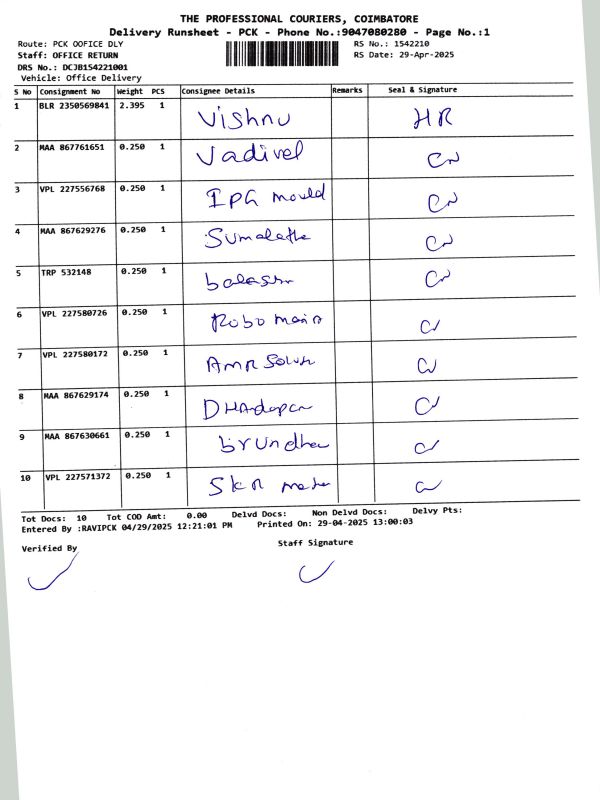 THE PROFESSIONAL COURIERS, COIMBATORE
Delivery Runsheet - PCK - Phone No.:9047080280 - Page No.:1
Route: PCK OOFICE DLY RS No.: 1542210
Staff: OFFICE RETURN RS Date: 29-Apr-2025
DRS No.: DCJB154221001
Vehicle: Office Delivery
S No Consignment No Weight PCS Consignee Details Remarks Seal & Signature
1 BLR 2350569841 2.395 1 Vishnu HR
2 MAA 867761651 0.250 1 Vadivel
3 VPL 227556768 0.250 1 IPG mould
4 MAA 867629276 0.250 1 Sumalatha
5 TRP 532148 0.250 1
6 VPL 227580726 0.250 1 Robo
7 VPL 227580172 0.250 1
8 MAA 867629174 0.250 1
9 MAA 867630661 0.250 1 brundha
10 VPL 227571372 0.250 1
Tot Docs: 10 Tot COD Amt: 0.00 Delvd Docs: Non Delvd Docs: Delvy Pts:
Entered By :RAVIPCK 04/29/2025 12:21:01 PM Printed On: 29-04-2025 13:00:03
Verified By Staff Signature